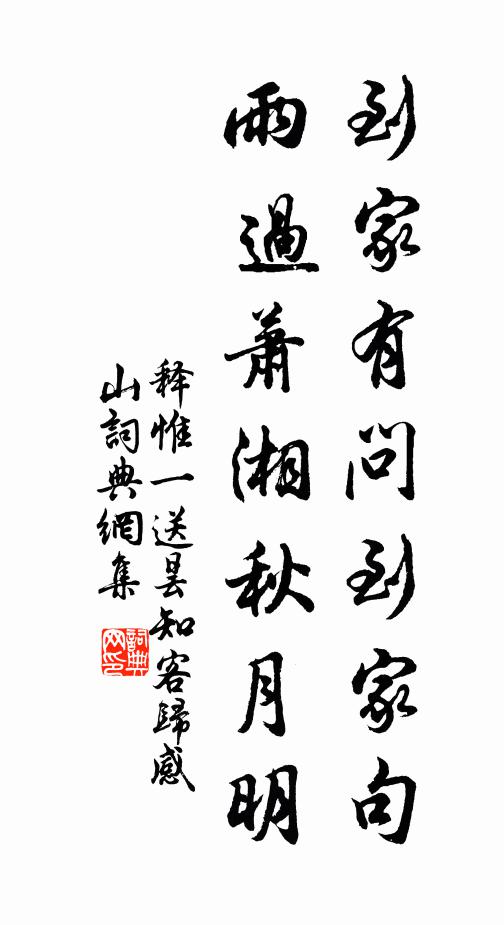 到家有問到家句
雨過蕭湘秋月明
释惟一送曇知客歸感
山詞典網集
詞典
网印